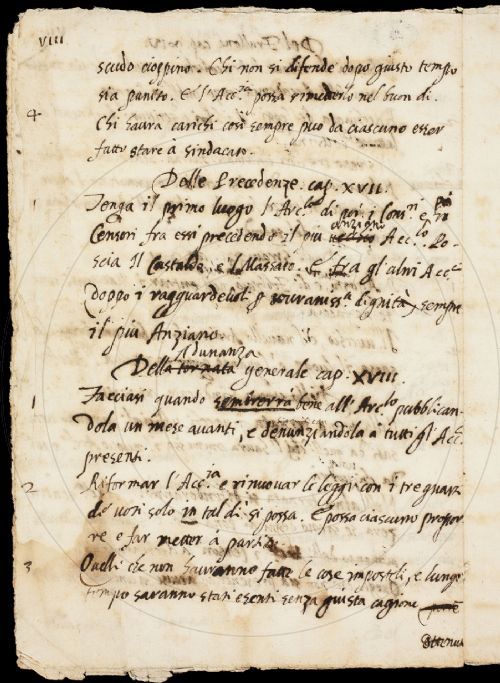 VIII
scudo cioppino. Chi non si difende dopo giusto tempo
sia punito. E l'Acc.ia possa rimederlo nel buon dì.
4
Chi haurà carichi così sempre può da ciascuno esser
fatto stare à sindacato.
Delle Precedenze. cap. XVII.
1 Tenga il primo luogo l'Arc.lo di poi i Cons.ri e
Censori fra essi precedendo il più anziano Acc.co Po-
scia il Castaldo, e l'Massaio. E tra gl'altri Acc.ci
doppo i ragguardevoli p souraniss.a dignità, sempre
il più Anziano.
Adunanza
Della tornata generale cap. XVIII.
1 Facciasi quando sembrerrà bene all'Arc.lo pubblican-
dola un mese avanti, e denunziandola à tutti gl'Acc.ci
presenti.
2 Riformar l'Acc.ia e rinnovar le leggi con i tre quar-
ti de' voti solo in tal dì si possa. E possa ciascuno propor-
re e far metter à partito.
3 Quelli che non hauranno fatte le cose impostoli, e lungo
tempo saranno stati esenti senza giusta cagione